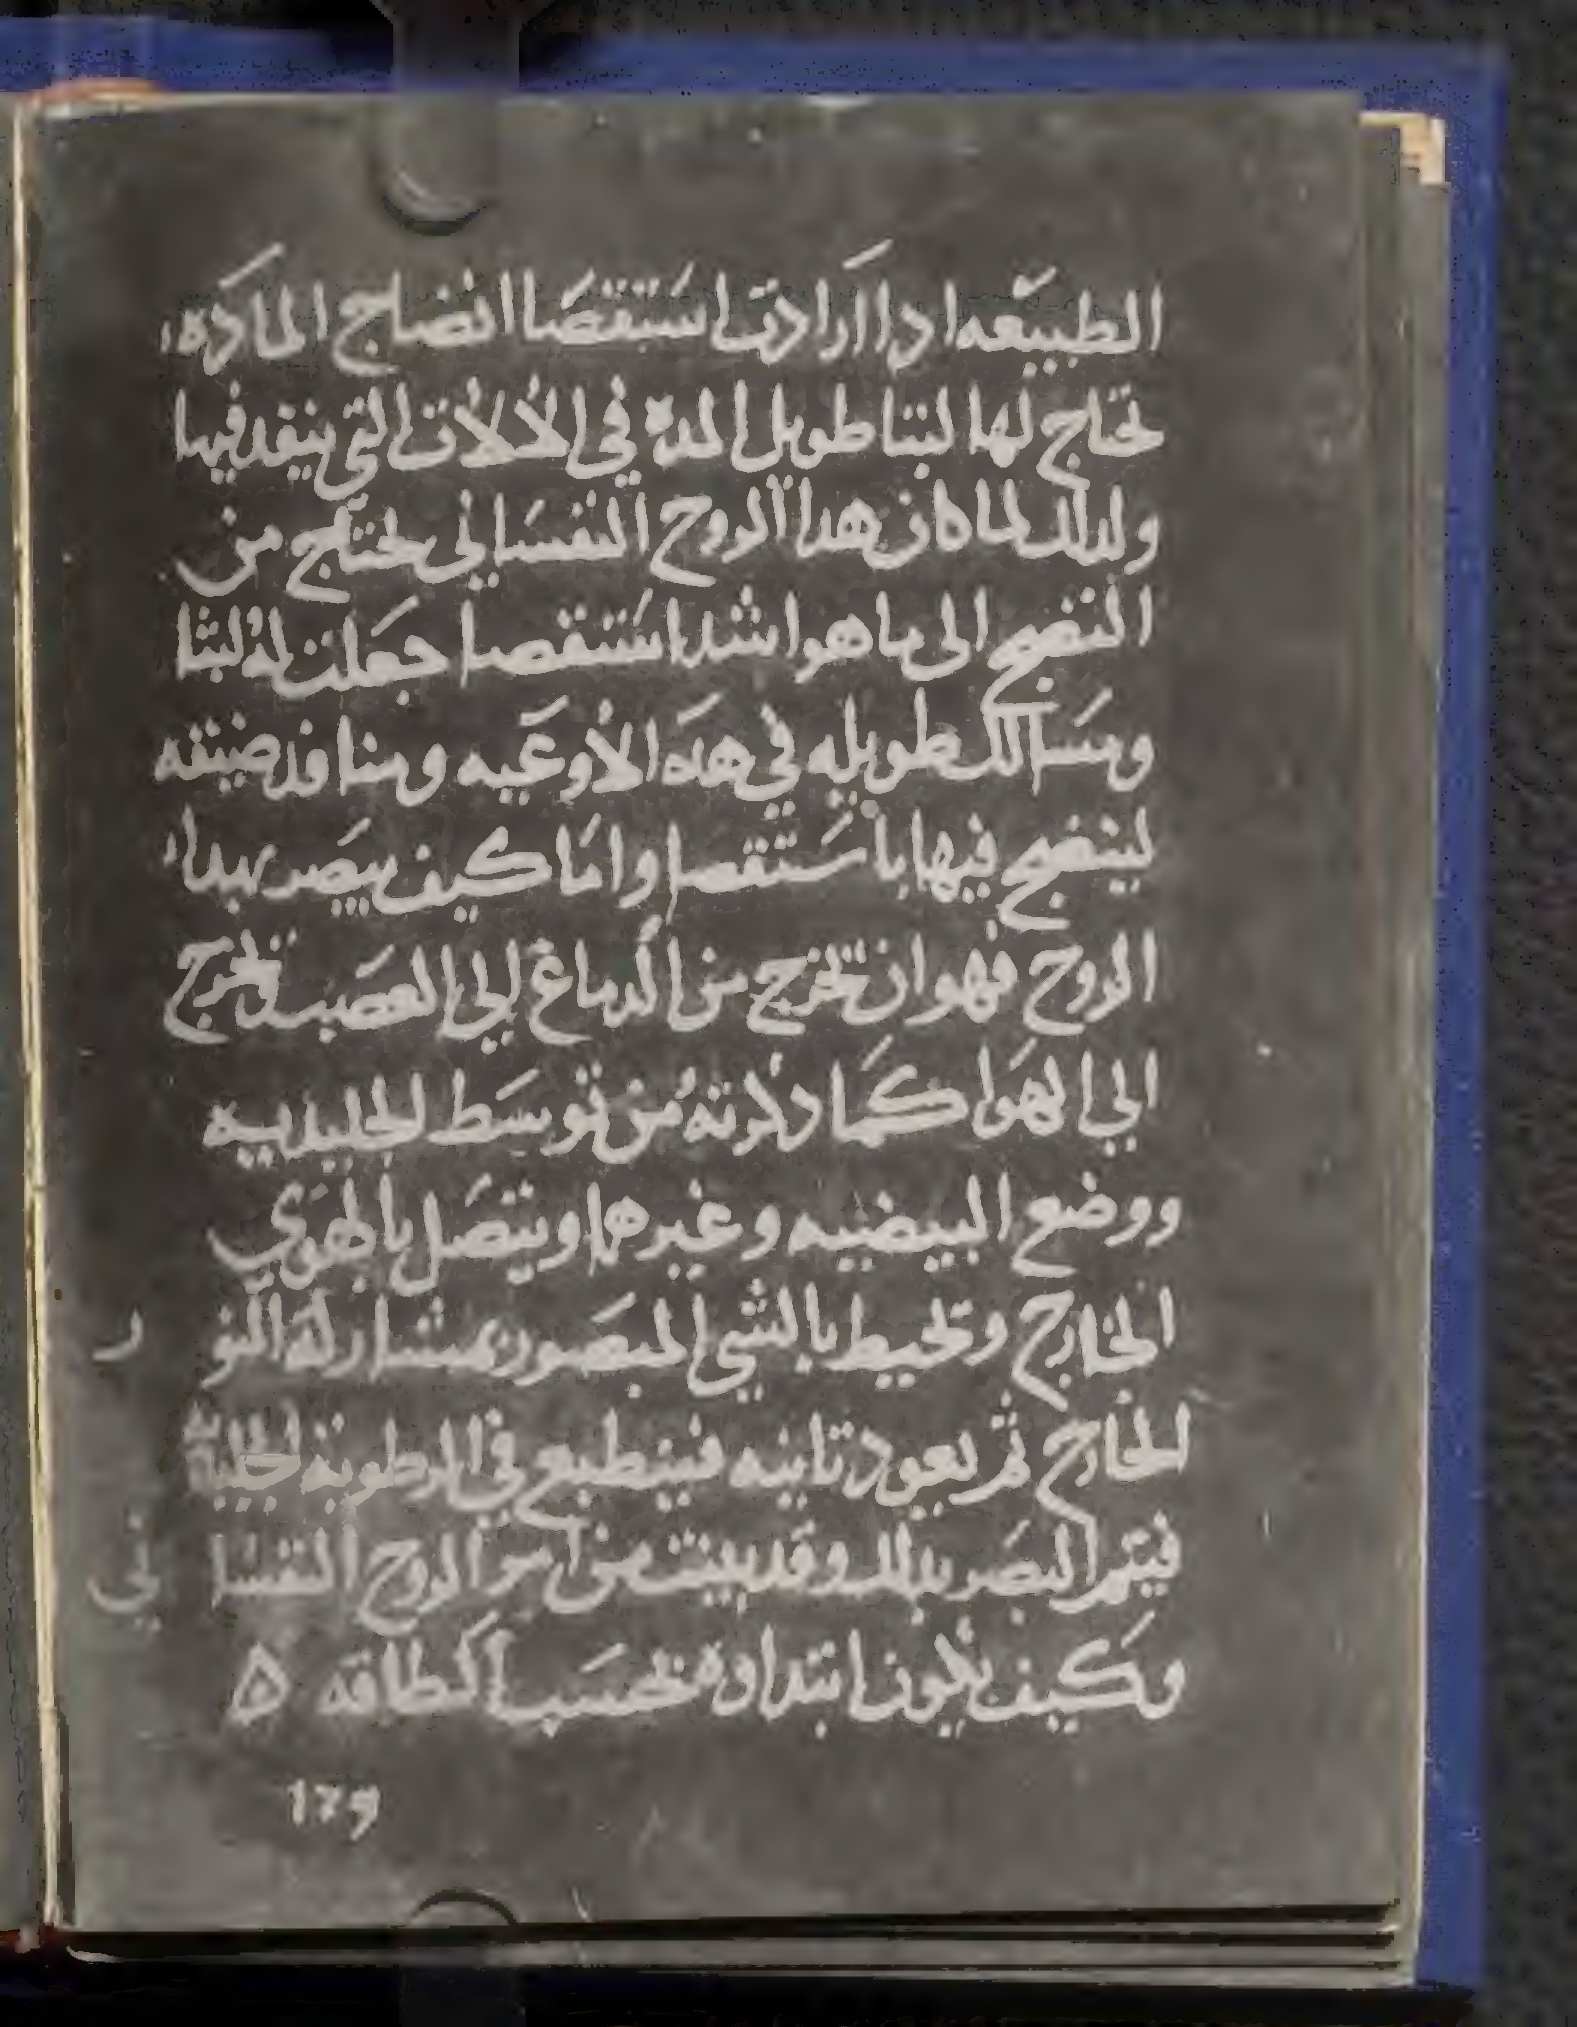 الطبيعه ادا ارادت استقصا انضاج الماده
تحتاج لها لبتا طويل المده في الالات التي ينفد فيها
ولدلك لما كان هدا الروح النفساني يحتاج من
النضج الى ما هو اشد استقصا جعلت له لبثا
ومسالك طويله في هده الاوعيه ومنافد ضيقه
لينضج فيها باستقصا واما كيف يبصر بهدا
الروح فهو ان تخرج من الدماغ الي العصب وتخرج
الي الهوا كما دكرته من توسط الجليديه
ووضع البيضيه وغيرهما ويتصل بالهوي
الخارج وتحيط بالشي المبصور بمشاركة النور
الخارج ثم يعود تانيه فينطبع في الرطوبة الجليدية
فيتم البصر بدلك وقد بينت من امر الروح النفساني
وكيف يكون ابتداوه بحسب الطاقه ه
179